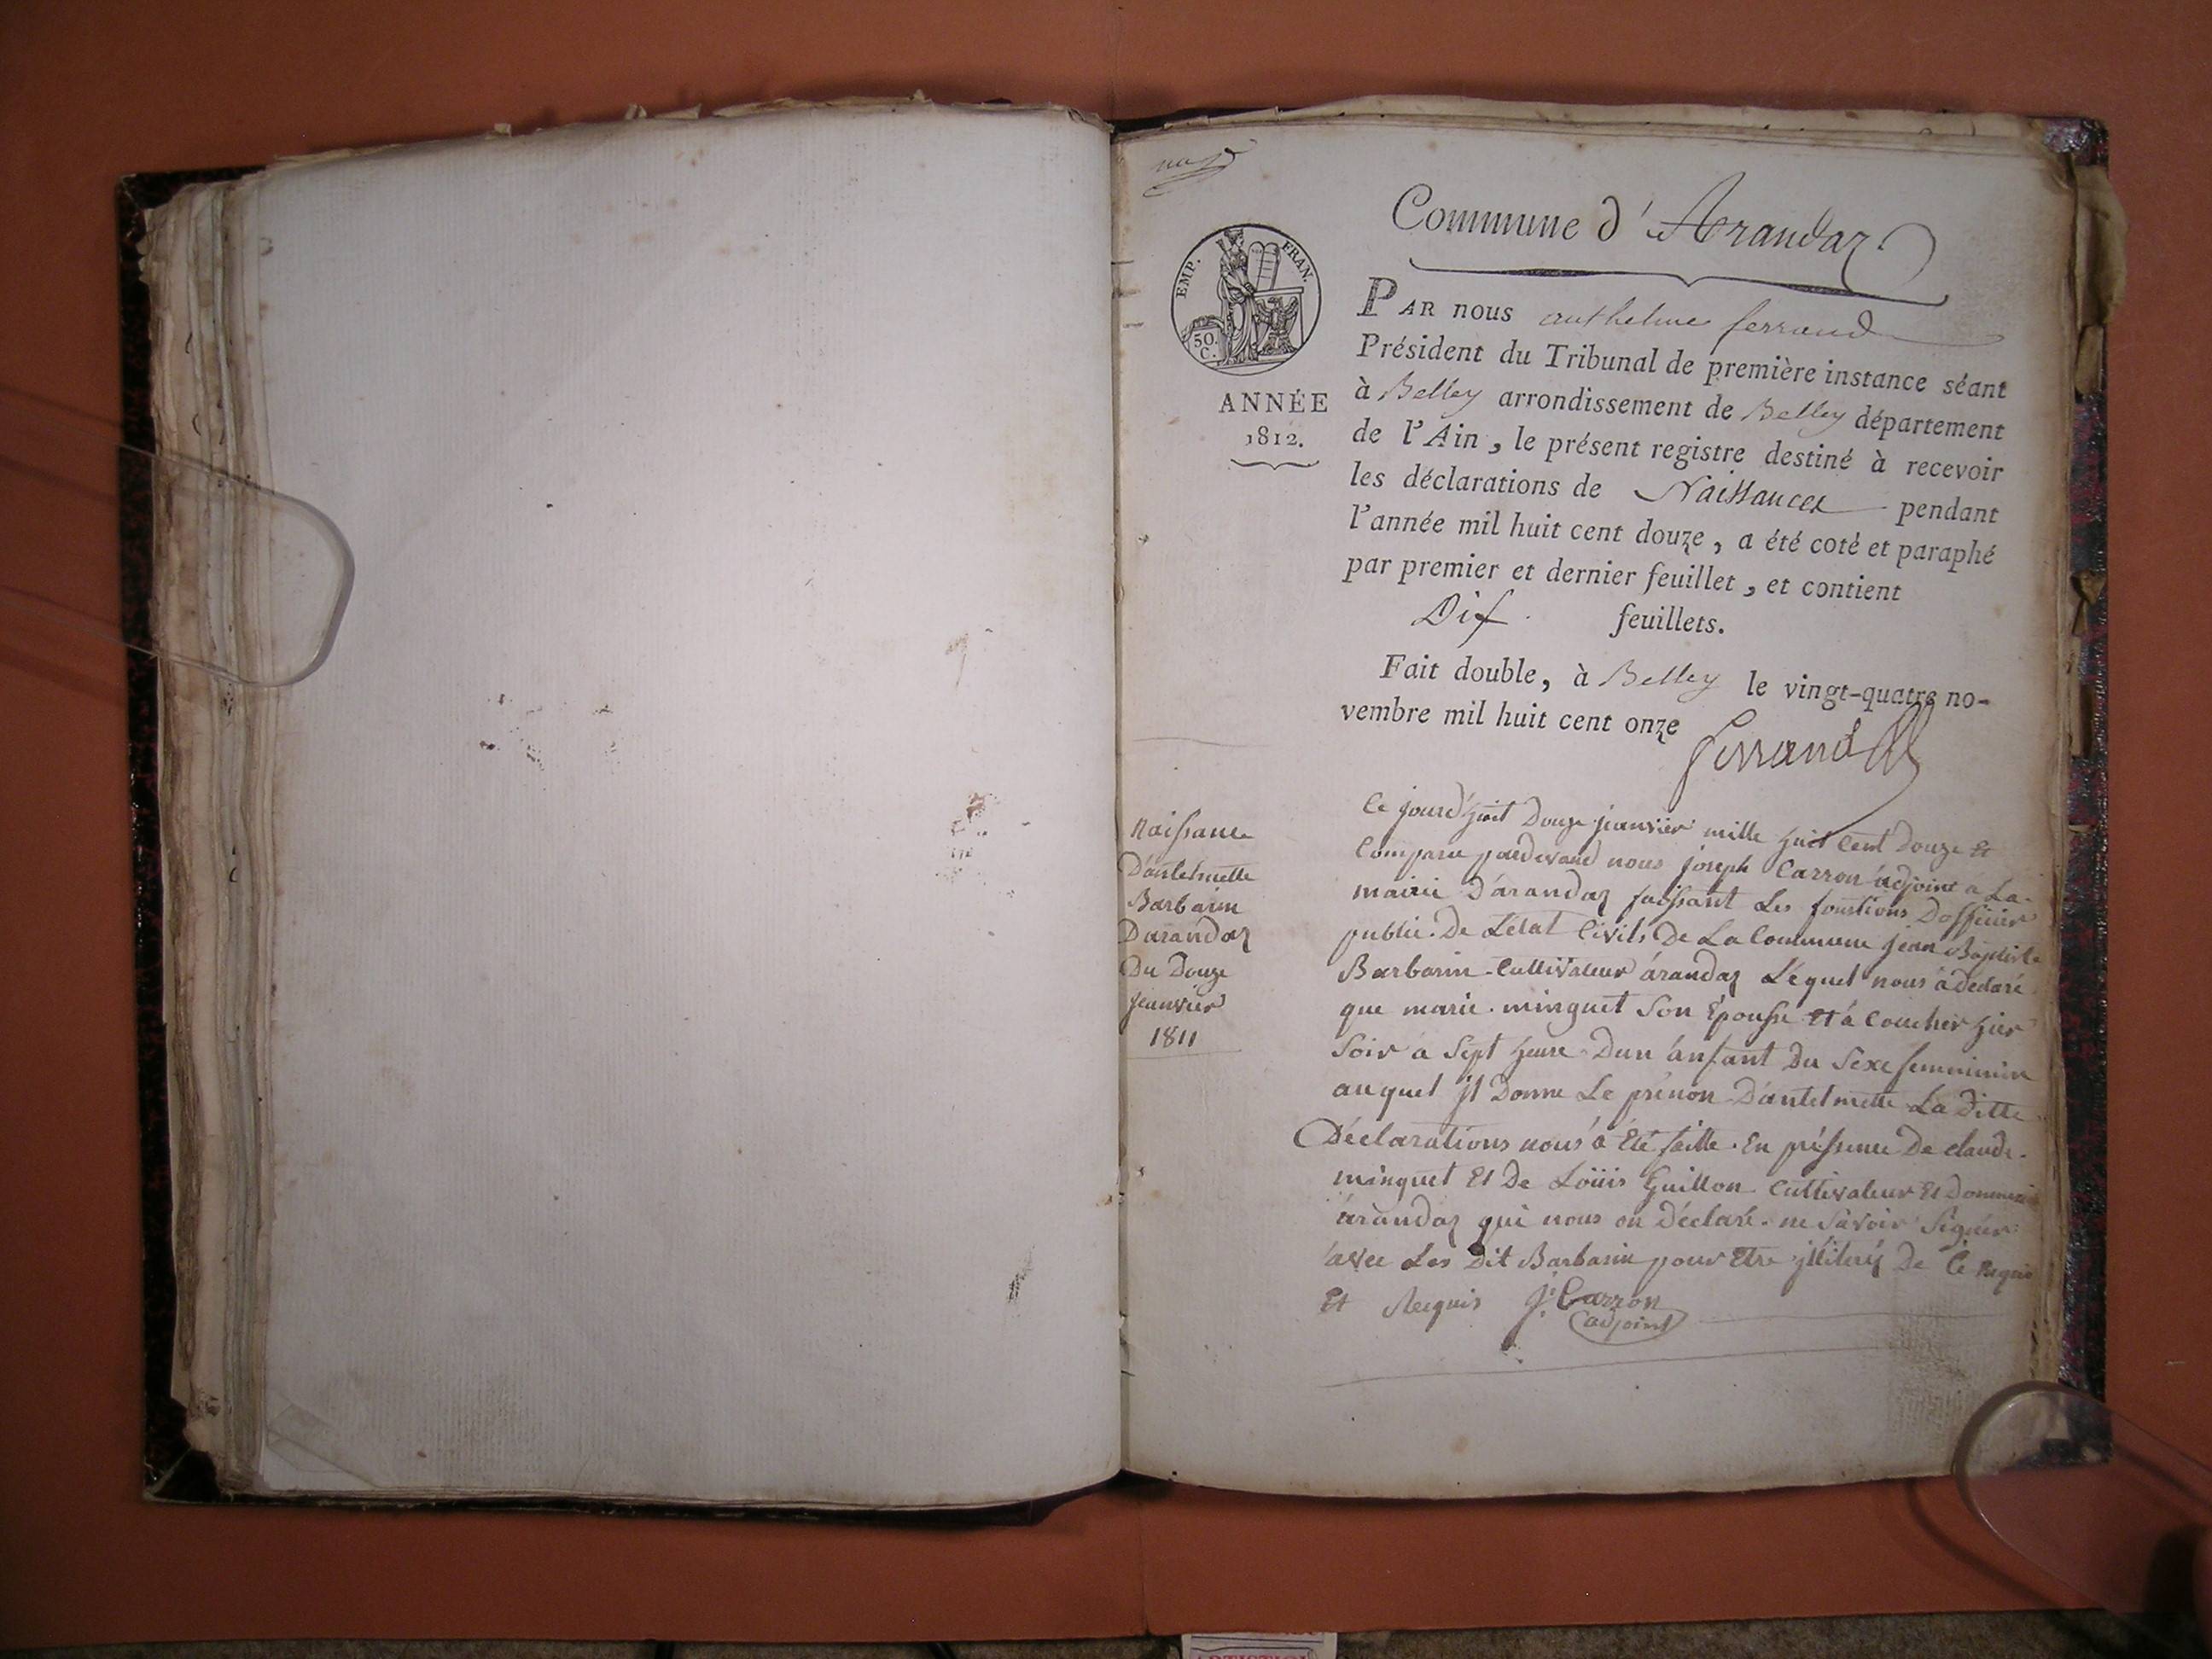 Commune d'Arandaz
EMP. FRAN.
50. C.
ANNÉE
1812.
PAR nous anthelme ferrand
Président du Tribunal de première instance séant
à Belley arrondissement de Belley département
de l'Ain, le présent registre destiné à recevoir
les déclarations de Naissances pendant
l'année mil huit cent douze, a été coté et paraphé
par premier et dernier feuillet, et contient
Dix feuillets.
Fait double, à Belley le vingt-quatre no-
vembre mil huit cent onze
ferrand
Naissance
D'antelmette
Barbarin
Darandaz
Du Douze
jeanvier
1811
Ce jourd'huit Douze jeanvier mille huit Cent Douze Et
Comparu pardevand nous joseph Carron adjoint a La
mairie D'arandaz faissant Les fonstions Dofficier
public De L'état Civils De La Commune jean Baptiste
Barbarin Cultivateur árandaz Léquel nous a dédaré
que marie minguet Son Épousse Et á Coucher hier
Soir a Sept heure Dun anfant Du Sexe femininin
auquel jl Donne Le prénon D'antelmette La Ditte
Déclarations nous a Été faitte En préssence De claude
minguet Et De Loüis Guillon Cultivateur Et
árandaz qui nous on Déclaré ne Savoir Signér
avec Les Dit Barbarin pour Etre jlliterés De Ce
Et Requis J. Carron
adjoint